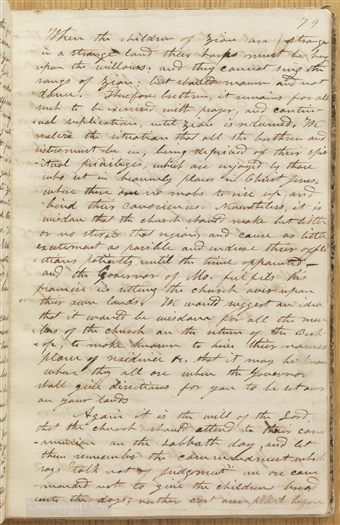 79
When the children of Zion are stranger
in a strange land their harps must be hung
upon the willows: and they cannot sing the
songs of Zion: but should mourn and not
dance. Therefore brethren, it remains for all
such to be exercised with prayer, and contin-
ual supplication, until Zion is redeemed. We
realize the situation that all the brethren and
sisters must be in, being deprived of their spir
itual privileges, which are enjoyed by those
who set in heavenly places in Christ Jesus:
where there are no mobs to rise up and
bind their consciences. Nevertheless, it is
wisdom that the church should make but little
or no stir in that region, and cause as little
excitement as possible and endure their affli
ctions patiently until the time appointed—
and the Governor of Mo. fulfils his
promise in setting the church over upon
their own lands. We would suggest an idea
that it would be wisdom for all the mem
bers of the church on the return of the Bish
op, to make known to him their names
place of residence &c. that it may be known
where they all are when the Governor
shall give directions for you to be set over
on your lands
Again it is the will of the Lord,
that the church should attend to their com
munion on the sabbath day, and let
them remember the commandment which
says "talk not of judgment" we are com
manded not to give the childrens bread
unto the dogs; neither cast our pearls before